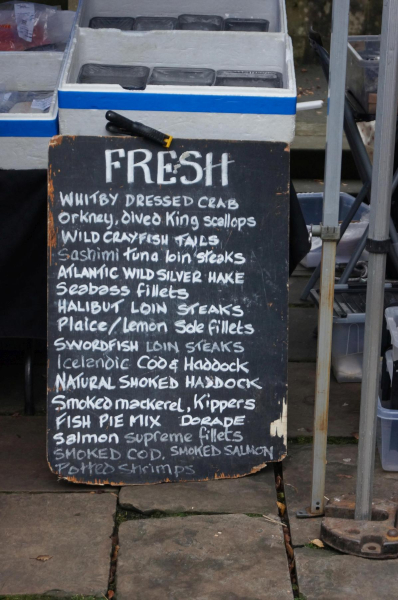 FRESH
WHITBY DRESSED CRAB
Orkney, dived King scallops
WILD CRAYFISH TAILS
Sashimi tuna loin steaks
ATLANTIC WILD SILVER HAKE
Seabass fillets
HALIBUT LOIN STEAKS
Plaice/lemon Sole fillets
SWORDFISH LOIN STEAKS
Icelandic Cod & Haddock
NATURAL SMOKED HADDOCK
Smoked mackerel, Kippers
FISH PIE MIX DORADE
Salmon supreme fillets
SMOKED COD, SMOKED SALMON
Potted Shrimps